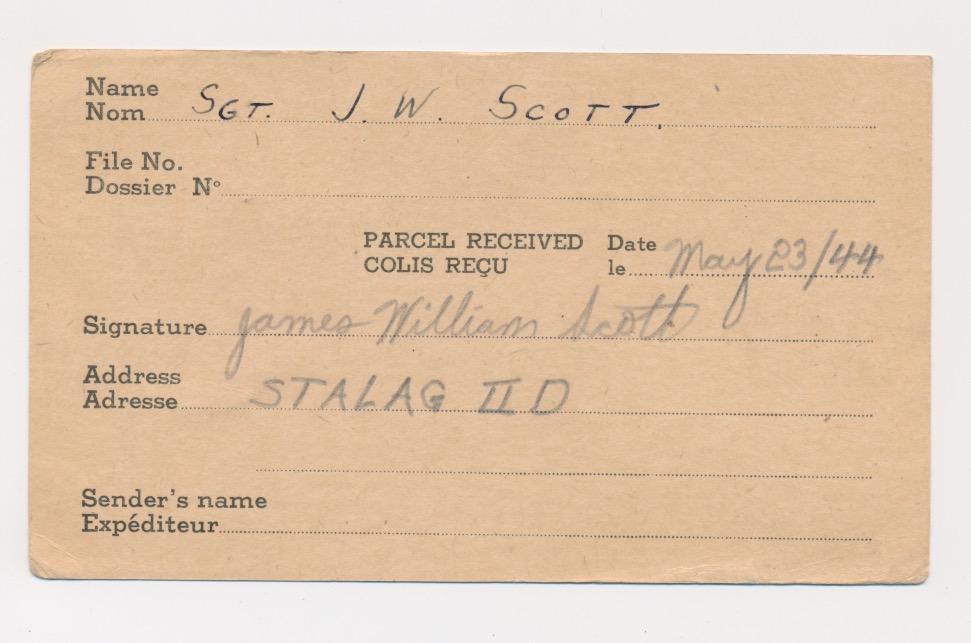 Name
Nom SGT. J. W. SCOTT.
File No.
Dossier Nº
PARCEL RECEIVED Date
COLIS REÇU le May 23/44
Signature James William Scott
Address
Adresse STALAG II D
Sender's name
Expéditeur